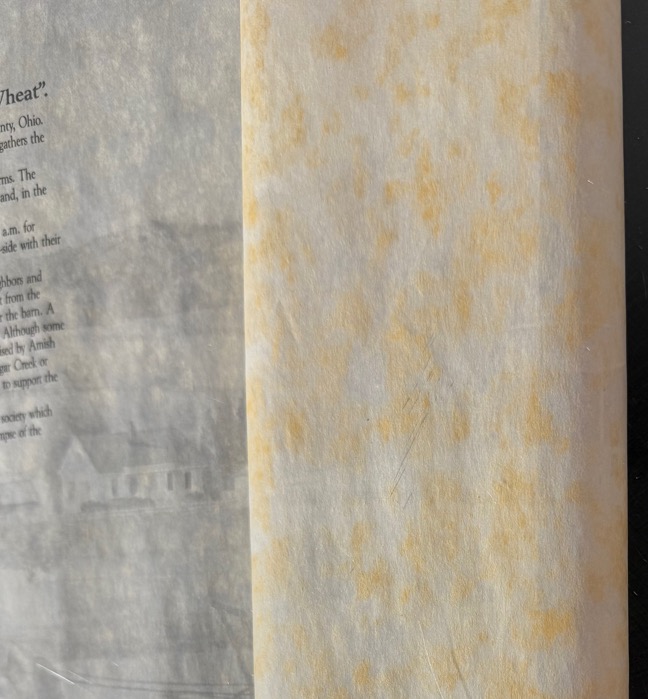 Wheat".
nty, Ohio.
gathers the
ms. The
and, in the
a.m. for
-side with their
hbors and
t from the
r the barn. A
Although some
sed by Amish
gar Creek or
to support the
society which
mpse of the